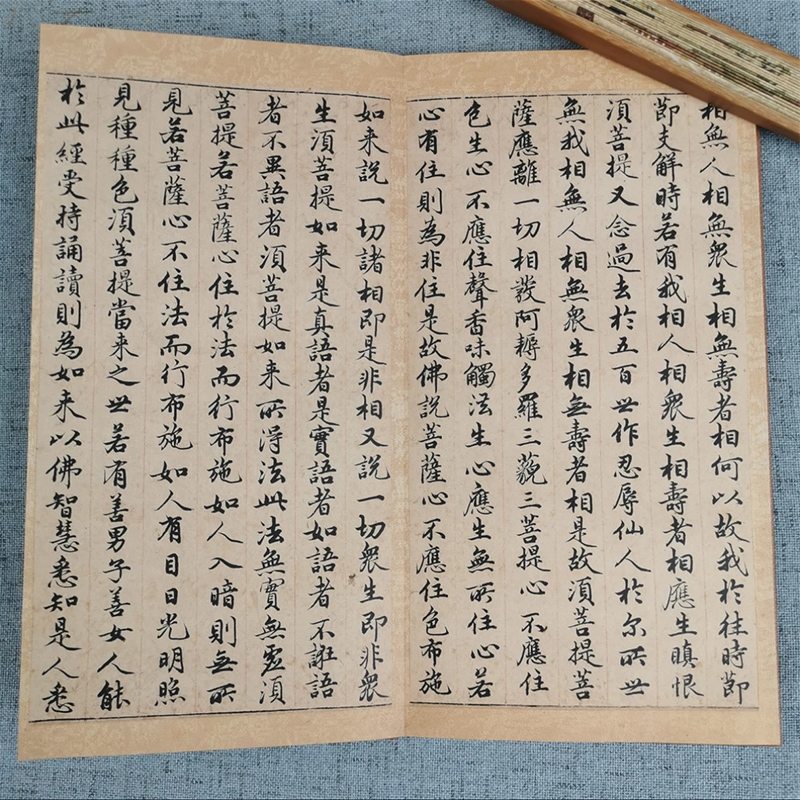 相無人相無衆生相無壽者相何以故我於往時節
節支解時若有我相人相衆生相壽者相應生瞋恨
須菩提又念過去於五百世作忍辱仙人於尔所世
無我相無人相無衆生相無壽者相是故須菩提菩
薩應離一切相發阿耨多羅三藐三菩提心不應住
色生心不應住聲香味觸法生心應生無所住心若
心有住則為非住是故佛説菩薩心不應住色布施
如来説一切諸相即是非相又説一切衆生即非衆
生須菩提如来是真語者是實語者如語者不誑語
者不異語者須菩提如来所得法此法無實無虛須
菩提若菩薩心住於法而行布施如人入暗則無所
見若菩薩心不住法而行布施如人有目日光明照
見種種色須菩提當来之世若有善男子善女人能
於此經受持誦讀則為如来以佛智慧悉知是人悉